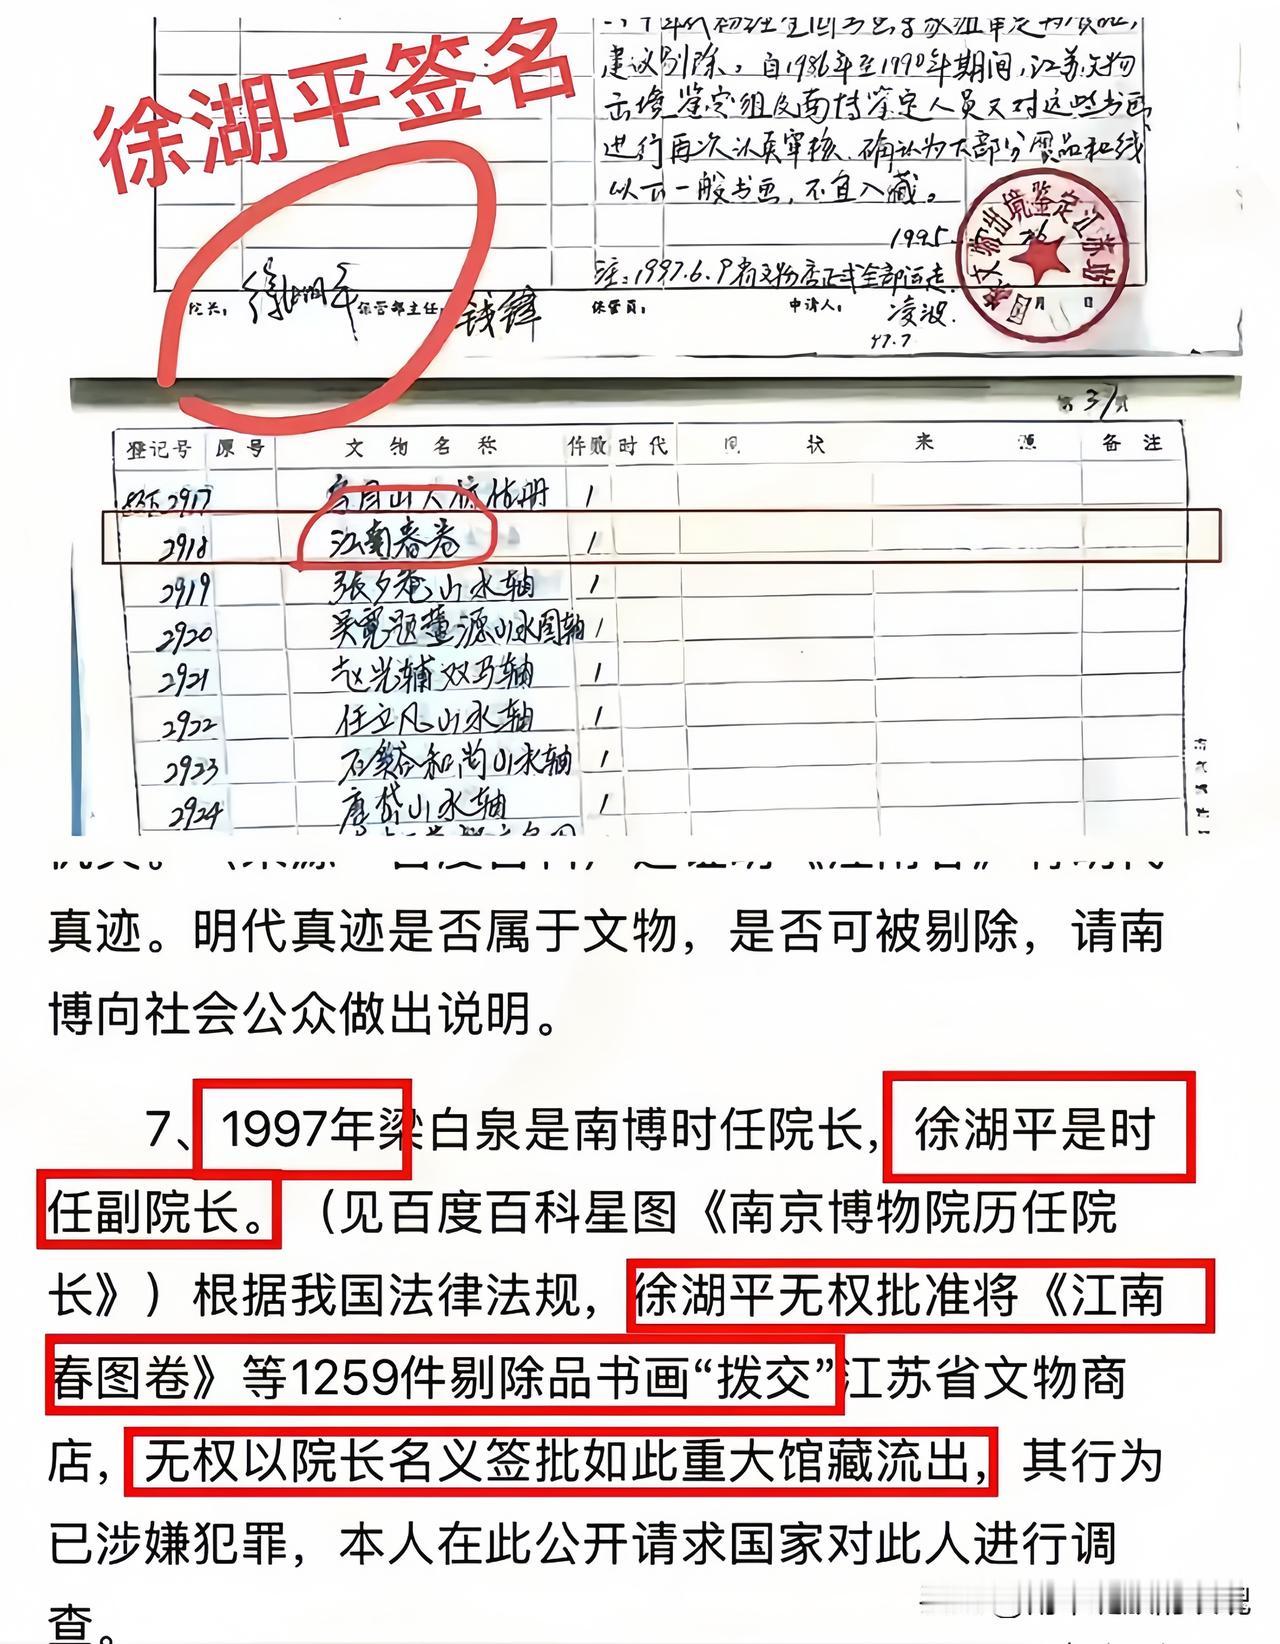 徐湖平签名
建议剔除。自1986年至1990年期间,江苏文物
出境鉴定组及南博鉴定人员又对这些书画
进行再次认真审核、确认为大部分
以下一般书画,不宜入藏。
1995.
注:1997.6.9
院长: 徐湖平 保管部主任: 钱锋 保管员: 申请人: 凌波.
97.7
文物出境鉴定江苏站
月 日
第31页
登记号 原号 文物名称 件数 时代 现状 来源 备注
2917 1
2918 江南春卷 1
2919 張夕菴山水轴 1
2920 吴寛题董源山水图轴 1
2921 赵光辅双马轴 1
2922 任立凡山水轴 1
2923 石谿和尚山水轴 1
2924 唐岱山水轴 1
真迹。明代真迹是否属于文物，是否可被剔除，请南
博向社会公众做出说明。
7、1997年梁白泉是南博时任院长，徐湖平是时
任副院长。（见百度百科星图《南京博物院历任院
长》）根据我国法律法规，徐湖平无权批准将《江南
春图卷》等1259件剔除品书画“拨交”江苏省文物商
店，无权以院长名义签批如此重大馆藏流出，其行为
已涉嫌犯罪，本人在此公开请求国家对此人进行调
查。